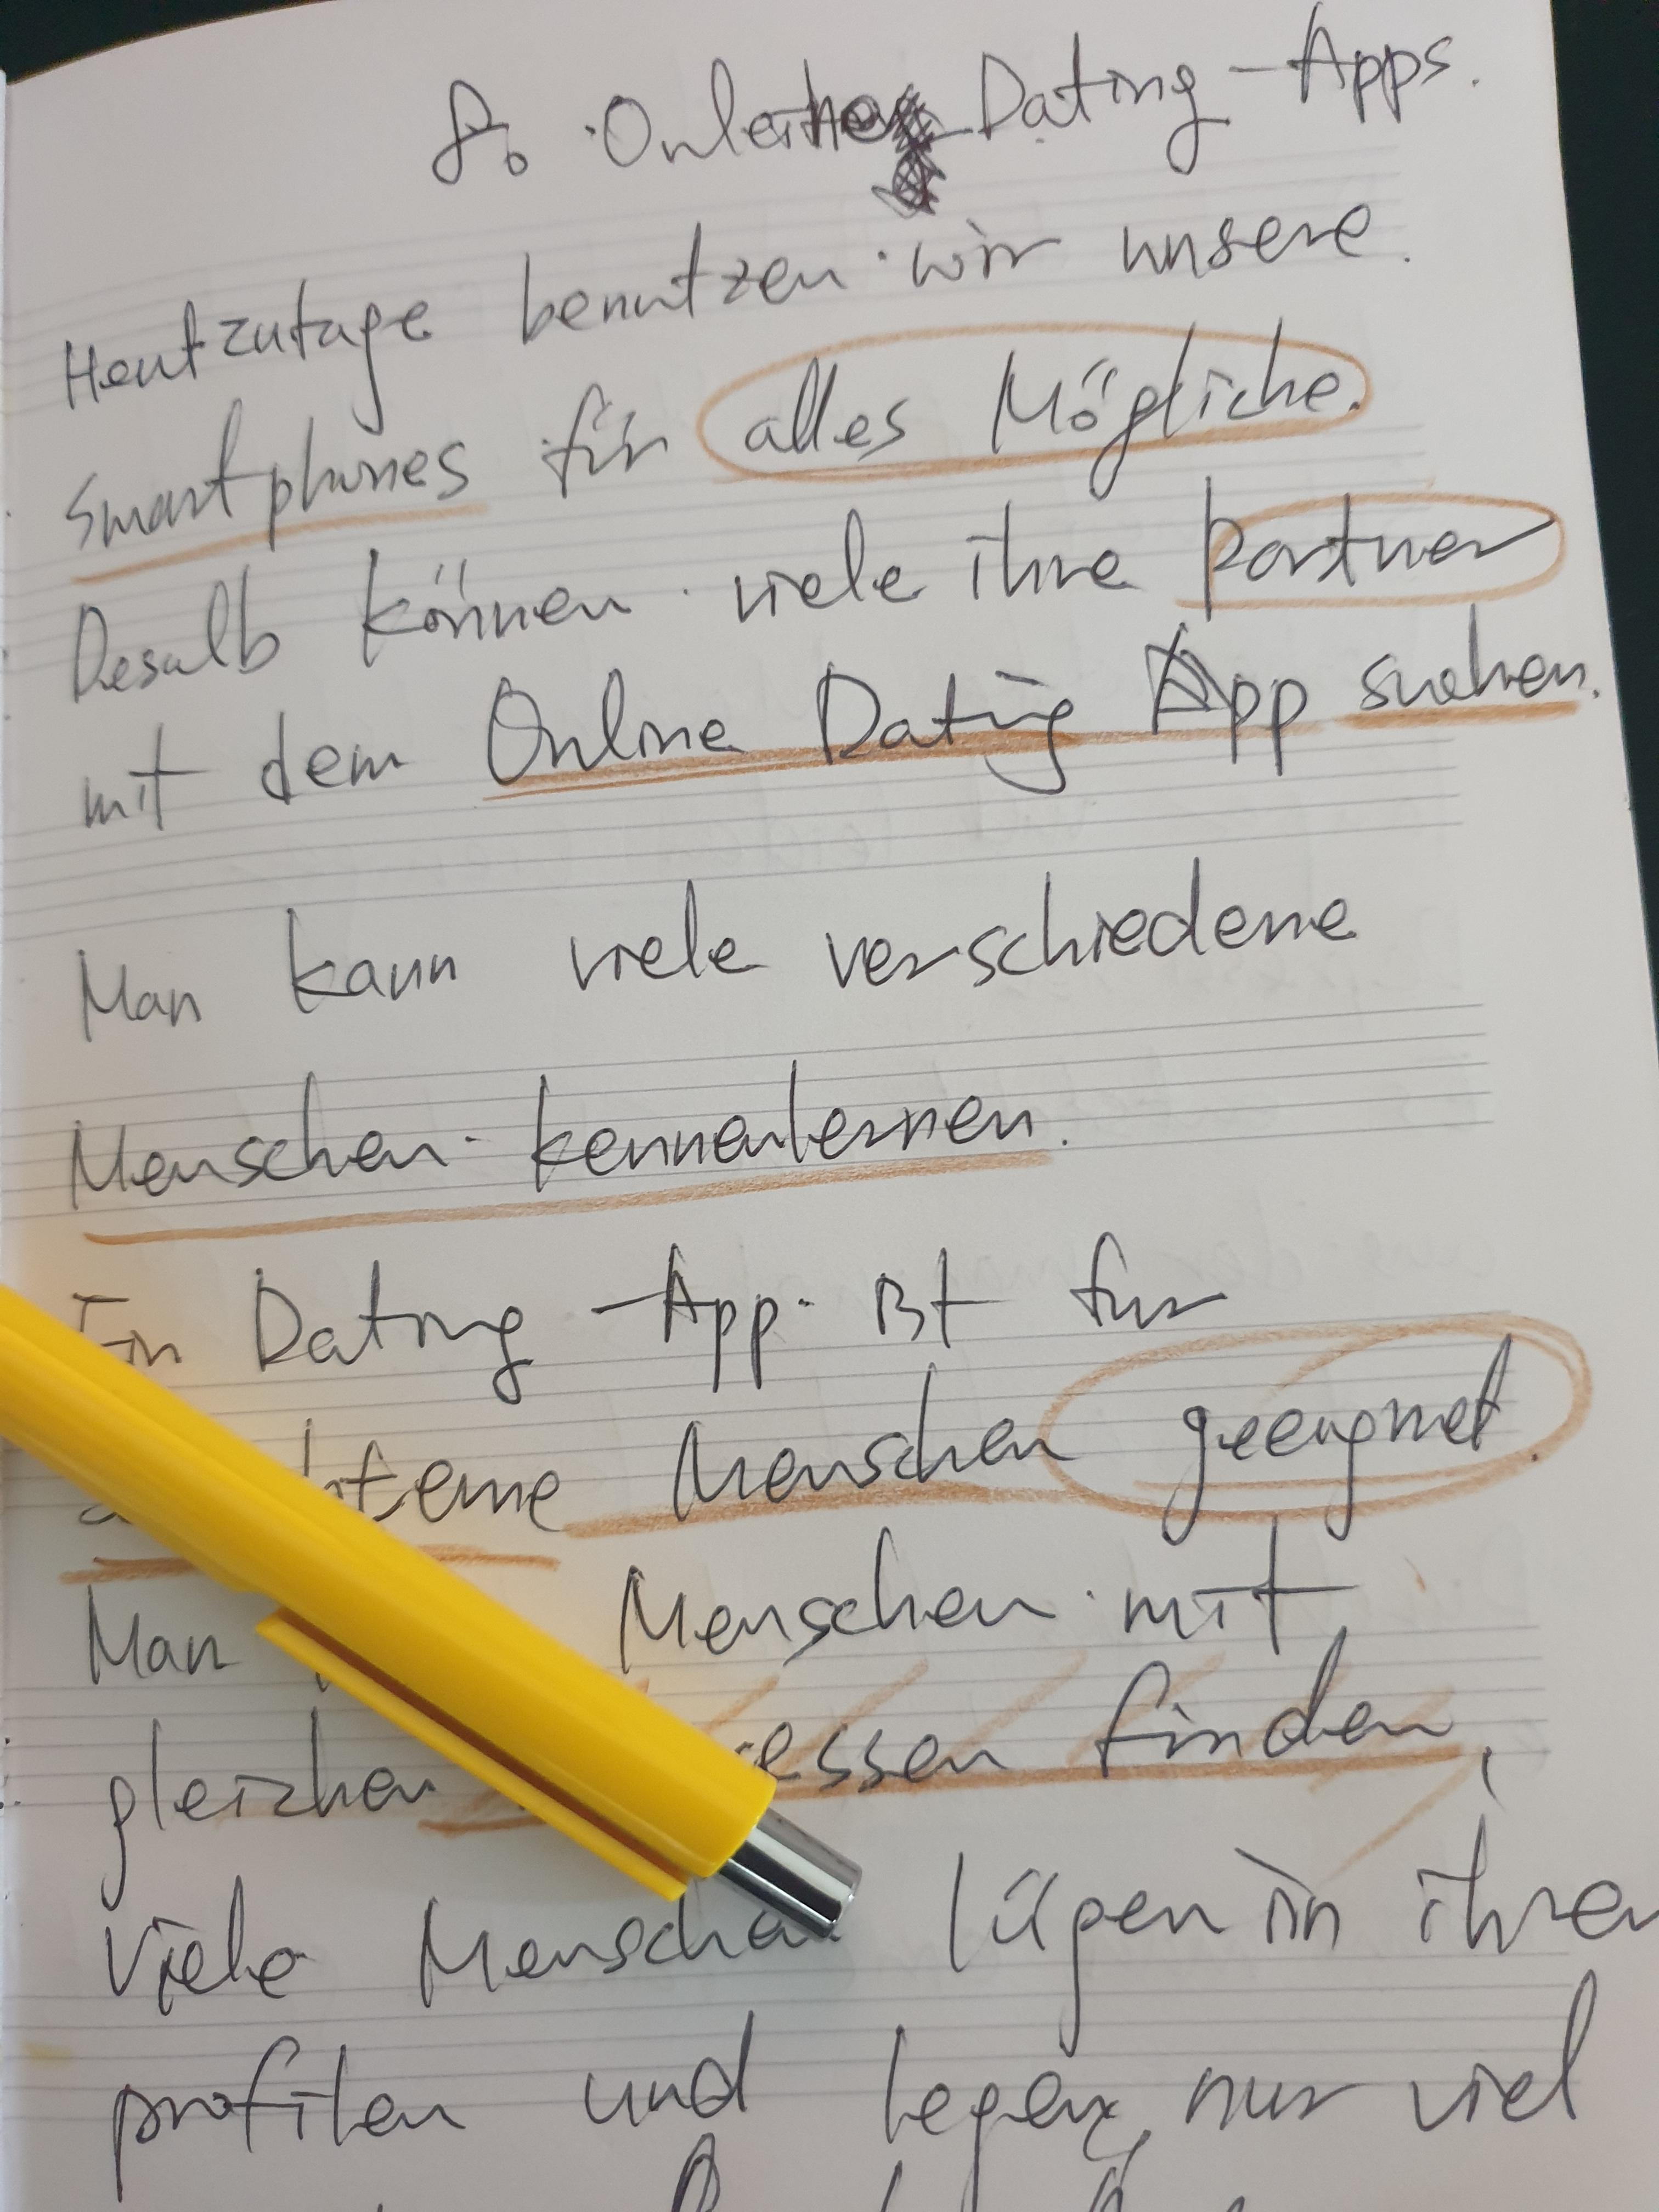 8. Onleine Dating-Apps.
Heutzutage benutzen wir unsere.
Smartphones für alles Mögliche.
Desalb können viele ihre partner
mit dem Online Dating App suchen.
Man kann viele verschiedene
Menschen kennenlernen.
Ein Dating-App ist fur
Menschen geeignet.
Man Menschen mit
gleichen finden,
Viele Menschen lügen in ihren
profilen und legen nur viel